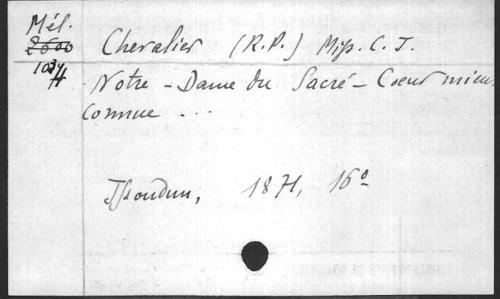 Mél.
2600
Chevalier (R.P.) Miss. C. J.
Notre-Dame du Sacré-Coeur mieux
connue ...
Issoudun, 1871, 16º